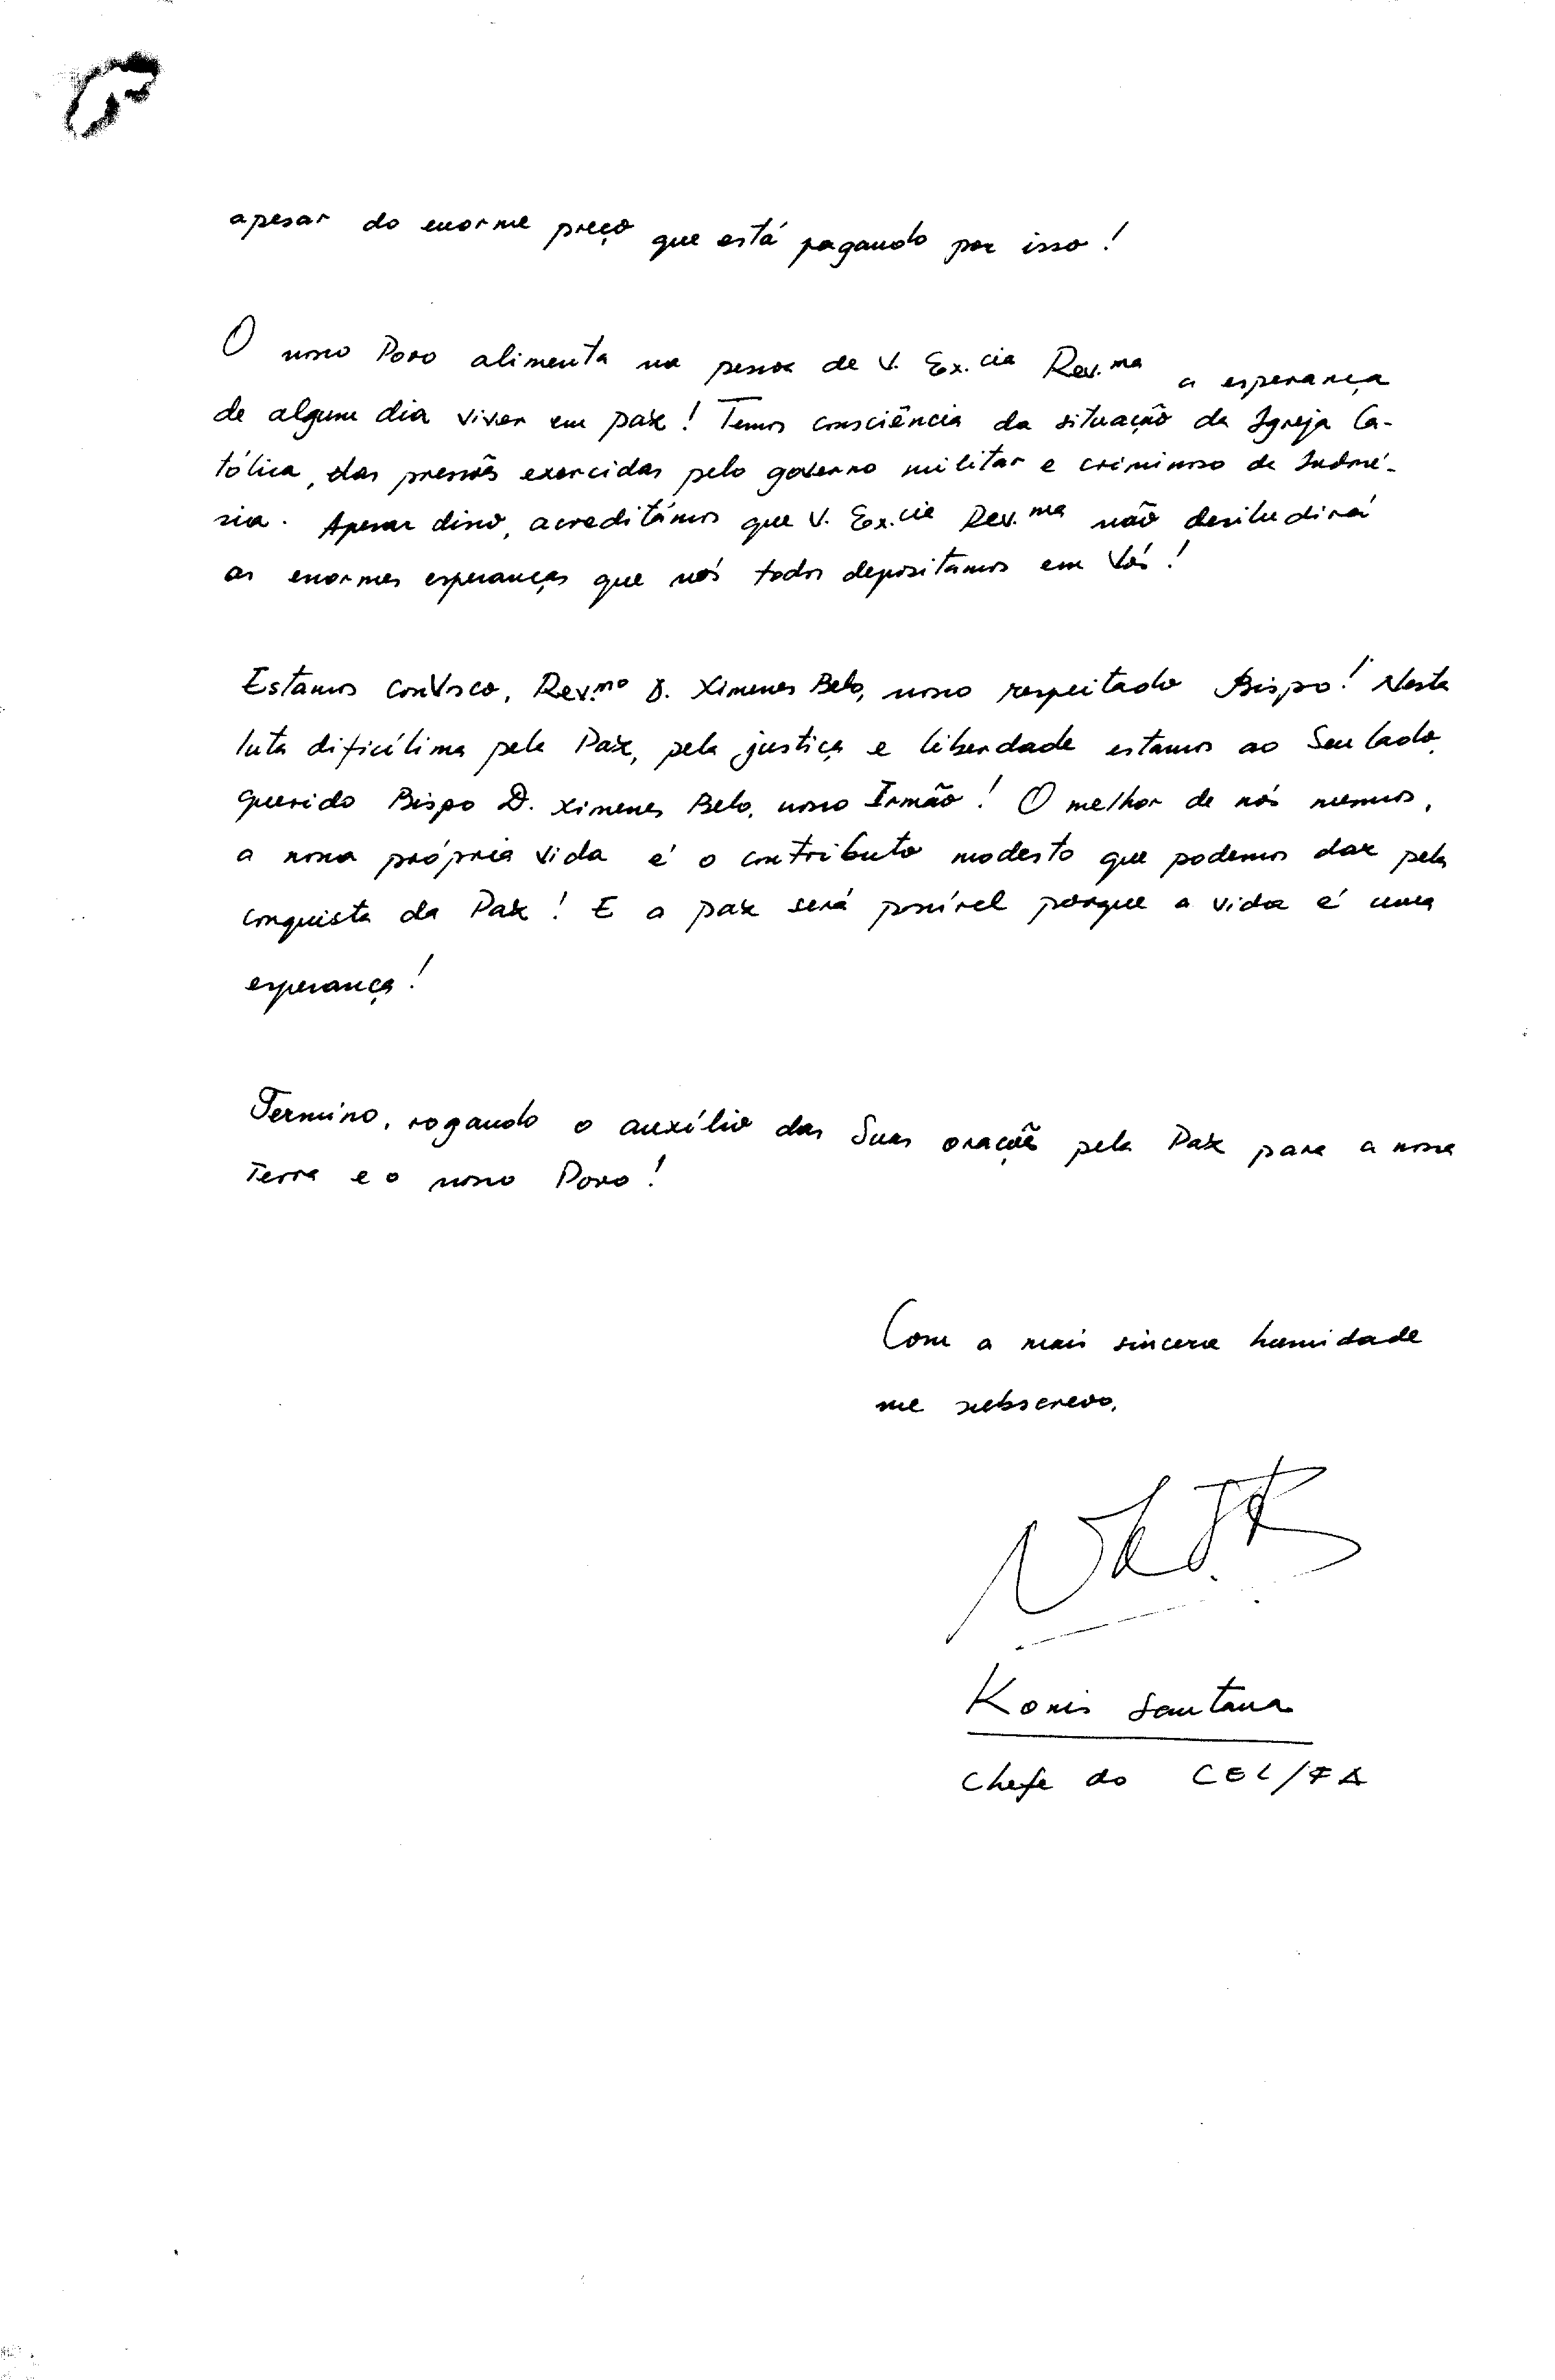 apesar do enorme preço que está pagando por isso!
O nosso Povo alimenta na pessoa de V. Ex.cia Rev.ma a esperança
de algum dia viver em paz! Temos consciência da situação da Igreja Ca-
tólica, das pressões exercidas pelo governo militar e criminoso da Indoné-
sia. Apesar disso, acreditámos que V. Ex.cia Rev.ma não desiludirá
as enormes esperanças que nós todos depositamos em Vós!
Estamos conVosco, Rev.mo D. Ximenes Belo, nosso respeitado Bispo! Nesta
luta dificílima pela Paz, pela justiça e liberdade estamos ao Seu lado,
querido Bispo D. Ximenes Belo, nosso Irmão! O melhor de nós mesmos,
a nossa própria vida é o contributo modesto que podemos dar pela
conquista da Paz! E a paz será possível porque a vida é uma
esperança!
Termino, rogando o auxílio das Suas orações pela Paz para a nossa
Terra e o nosso Povo!
Com a mais sincera humidade
me subscrevo,
Konis Santana
Chefe do CEL/FA